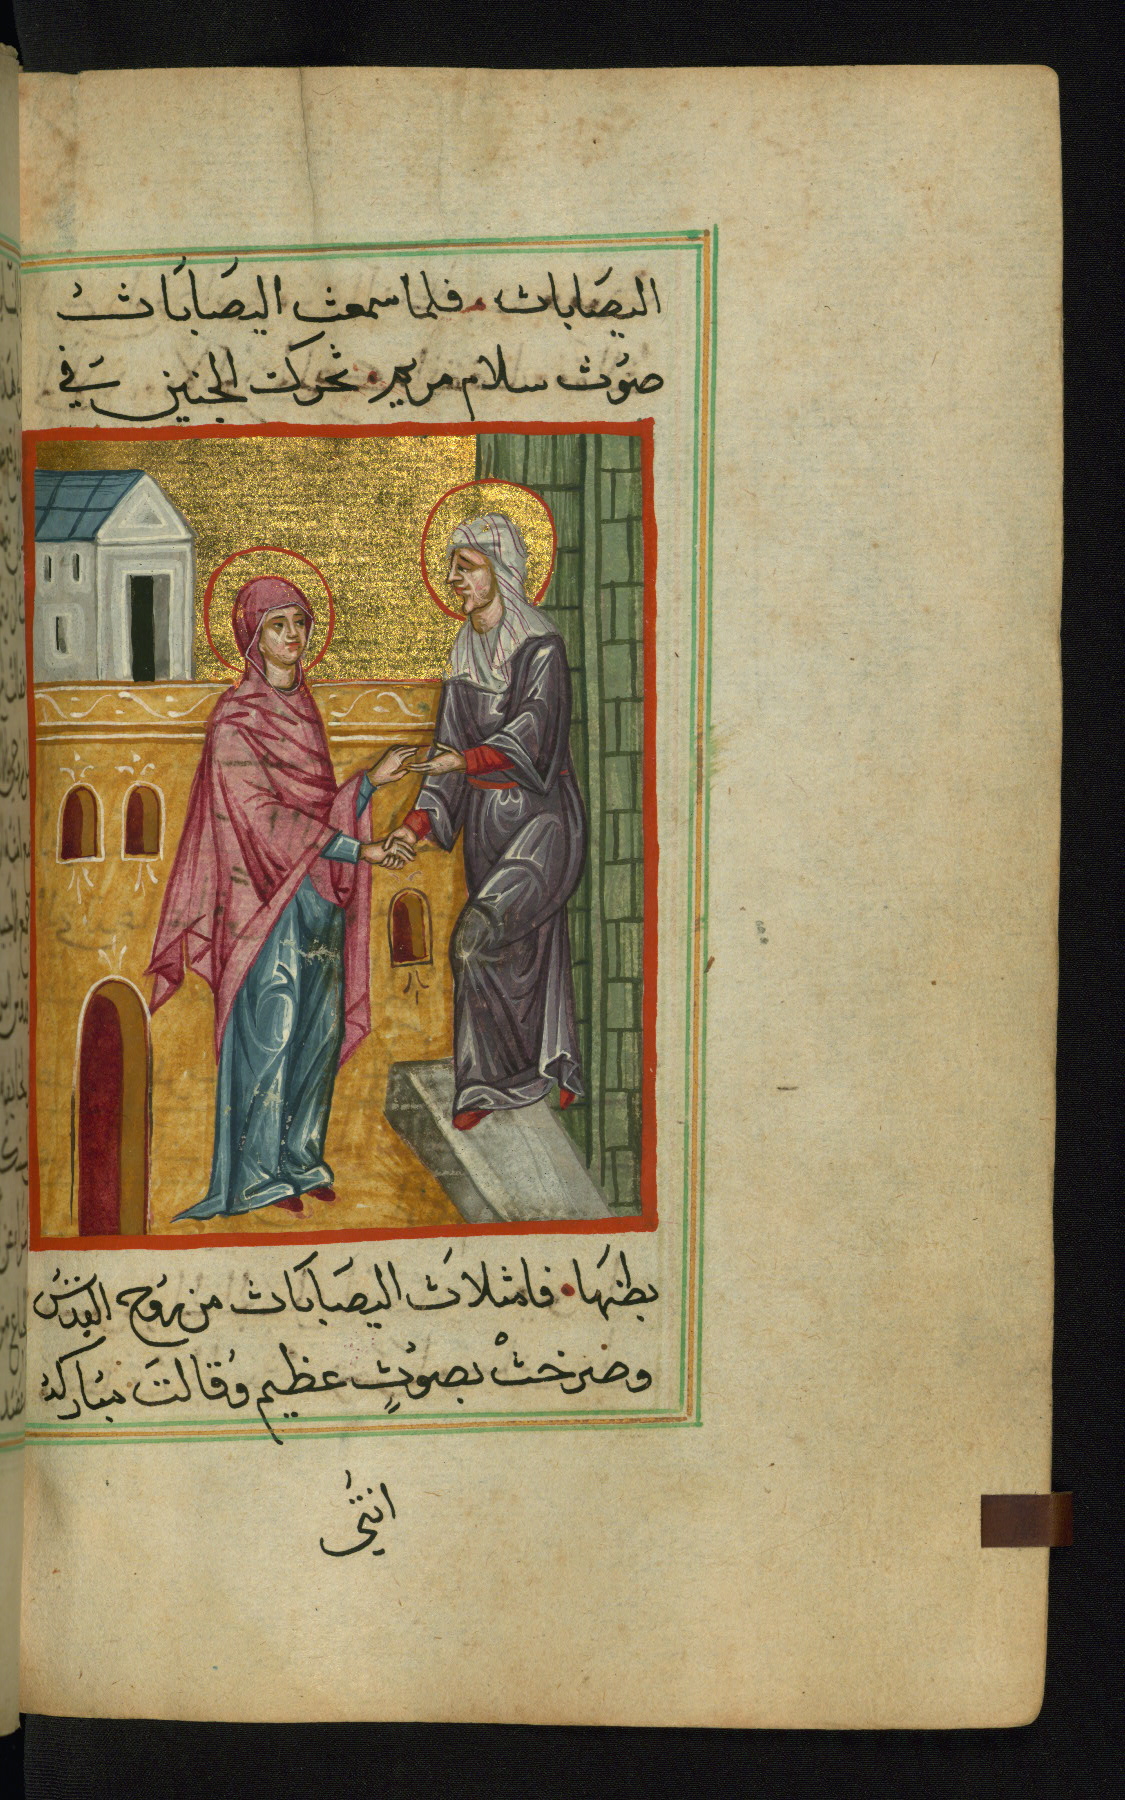 اليصَابات، فلما سمعت اليصَابَاتُ
صوُت سلام مريم تحركت الجنين في
بطنهَا فامتلاَت اليصَابَاث من روُح القدسُ
وصرخثْ بصوُتٍ عظيم وُقالتَ مبُاركهُ
انتُي